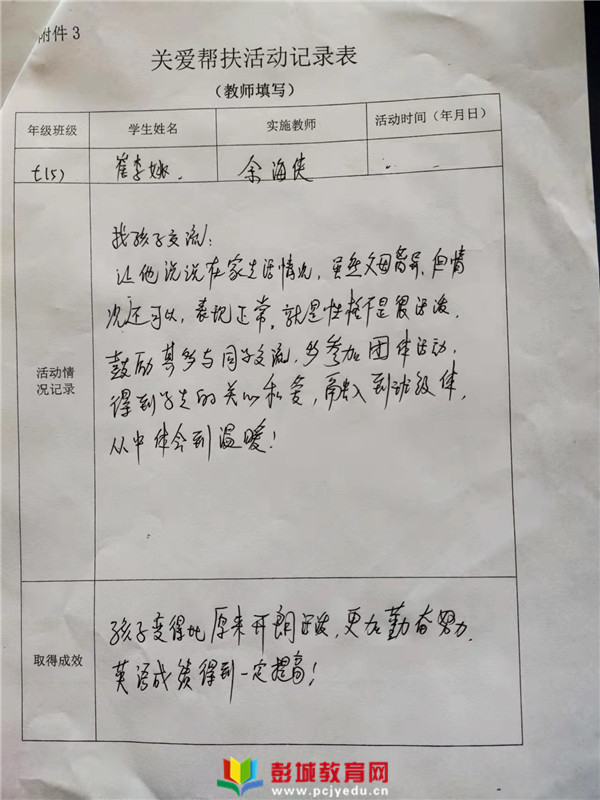 附件3
关爱帮扶活动记录表
（教师填写）
年级班级 学生姓名 实施教师 活动时间（年月日）
七(5) 崔李姚 余海侠
找孩子交流：
让他说说在家生活情况，虽然父母离异，但情
况还可以，表现正常，就是性格不是很活泼，
鼓励其多与同学交流，多参加团体活动，
得到学生的关心和爱，融入到班级体，
从中体会到温暖！
活动情
况记录
孩子变得比原来开朗活泼，更加勤奋努力，
英语成绩得到一定提高！
取得成效
彭城教育网
www.pcjyedu.cn